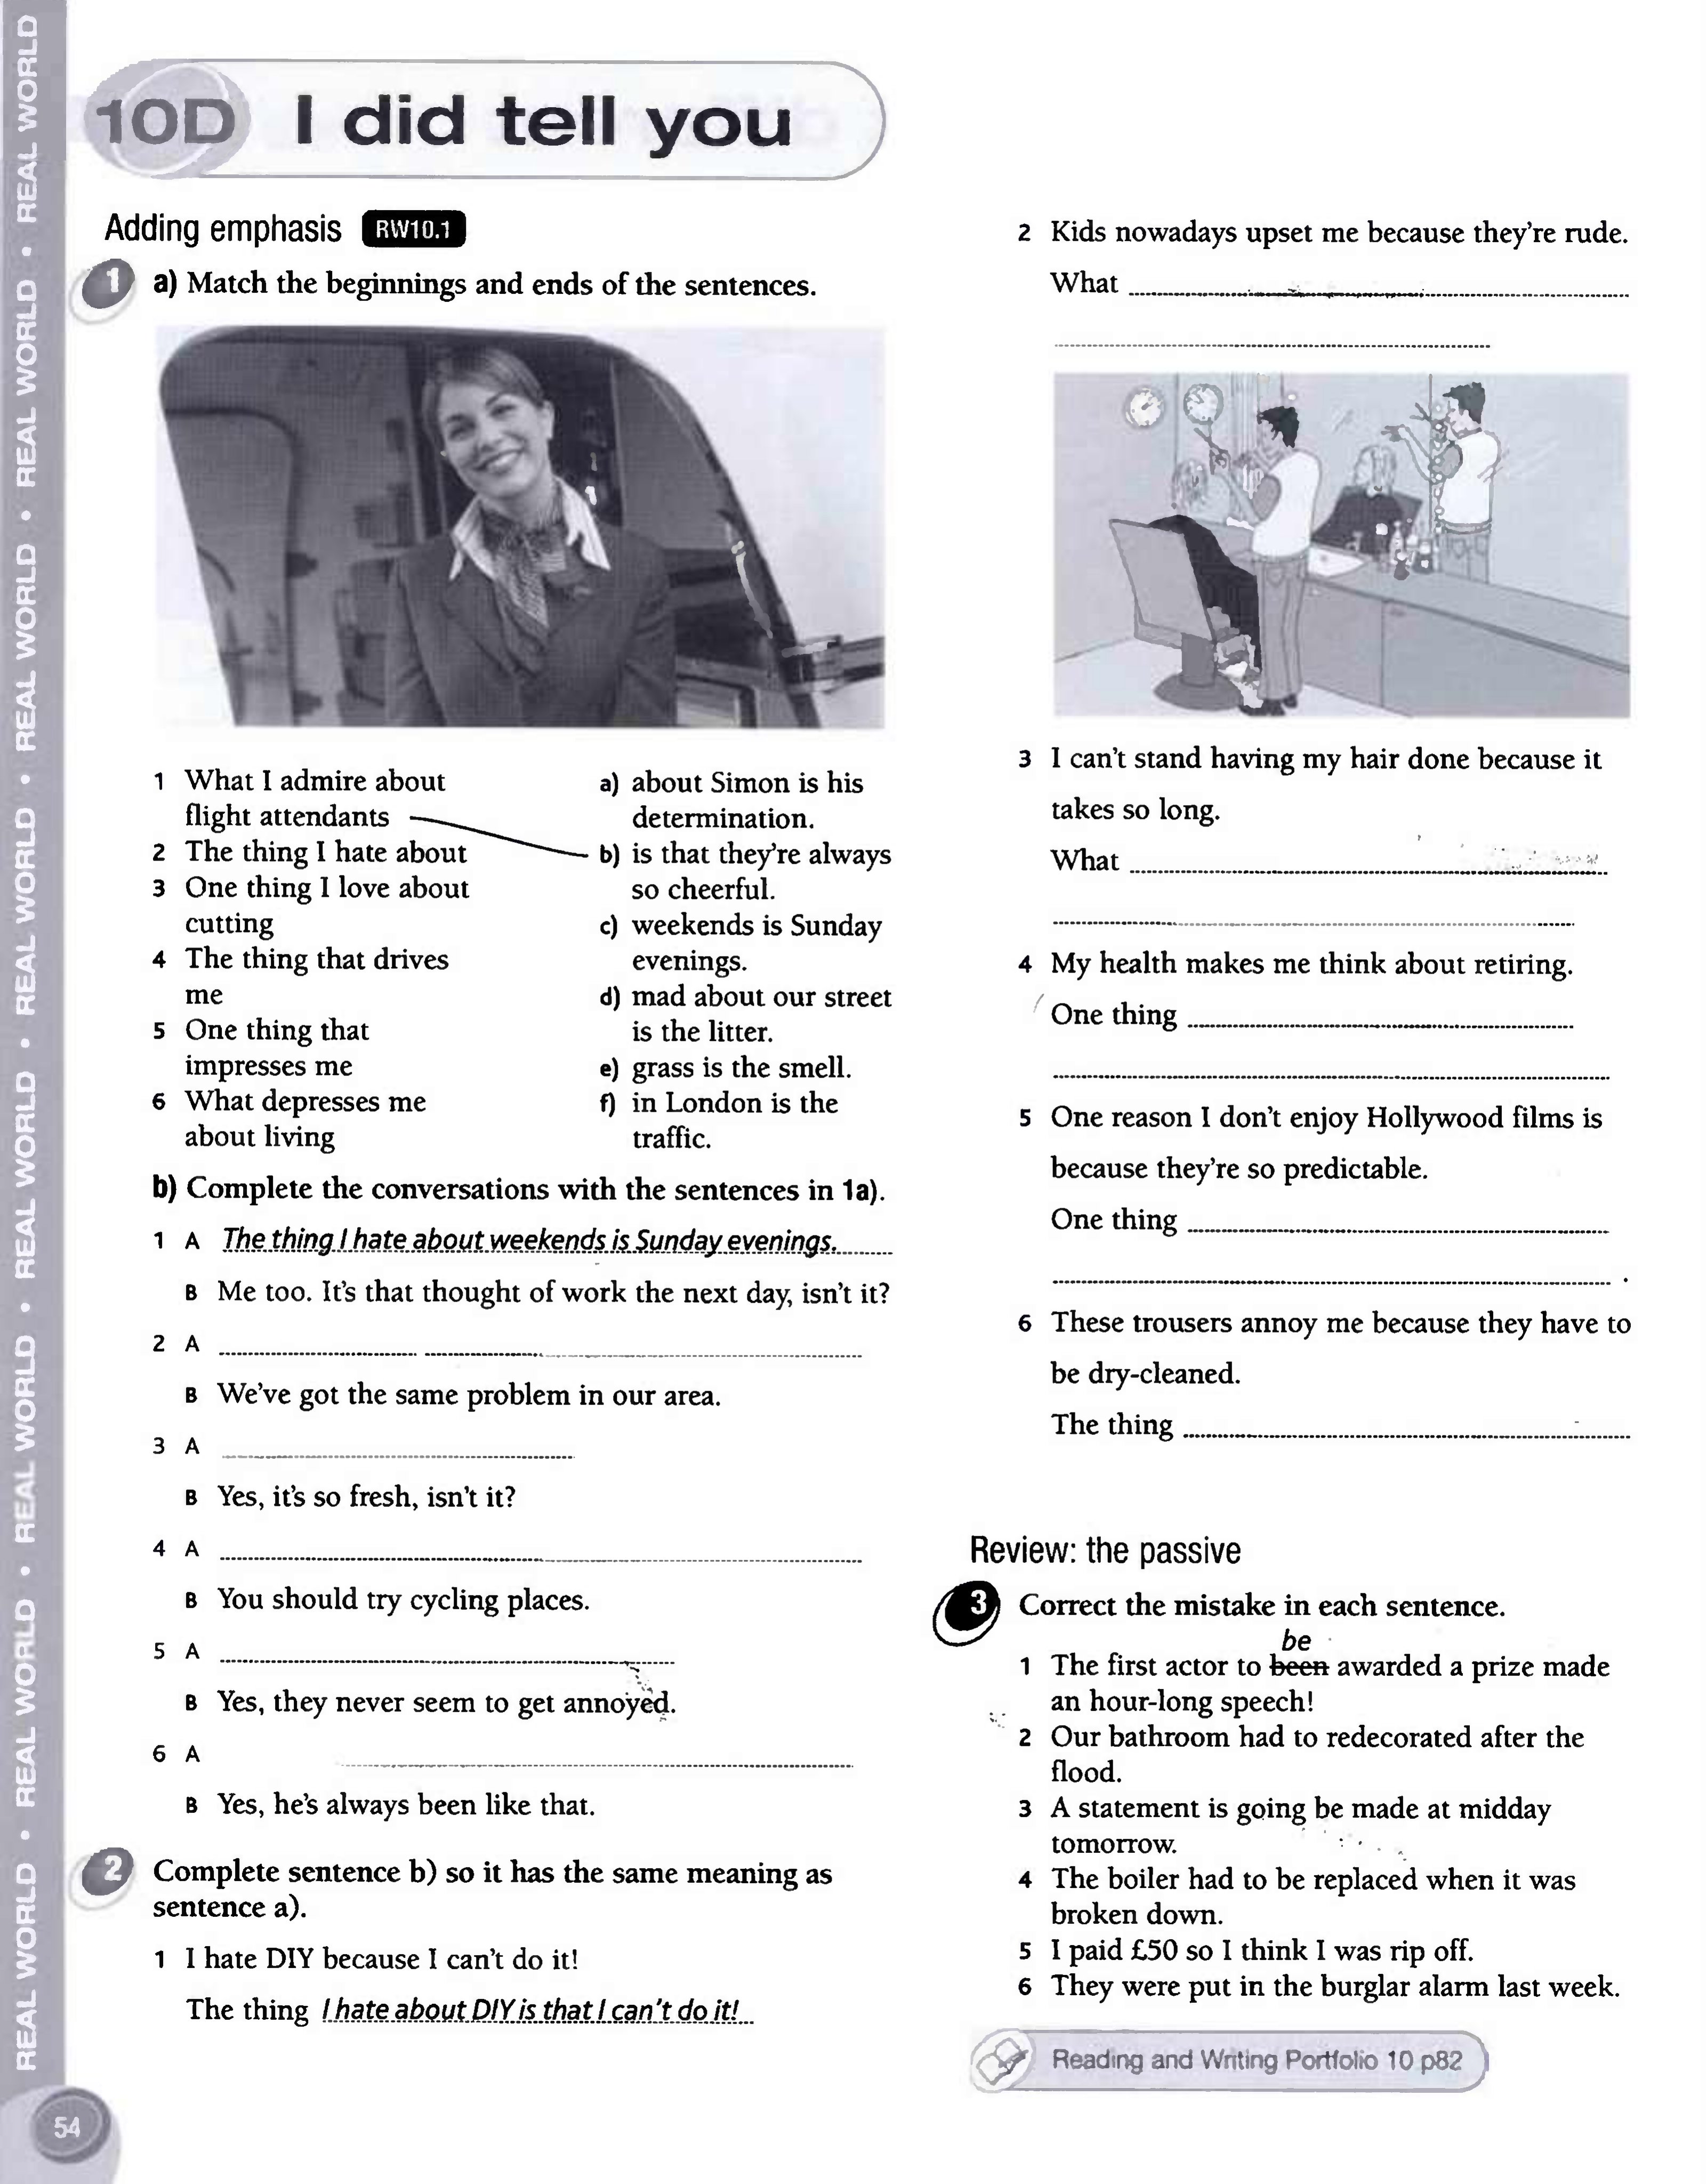 REAL WORLD • REAL WORLD • REAL WORLD • REAL WORLD • REAL WORLD • REAL WORLD • REAL WORLD • REAL WORLD
10D I did tell you
Adding emphasis RW10.1
1 a) Match the beginnings and ends of the sentences.
1 What I admire about
flight attendants
2 The thing I hate about
3 One thing I love about
cutting
4 The thing that drives
me
5 One thing that
impresses me
6 What depresses me
about living
a) about Simon is his
determination.
b) is that they're always
so cheerful.
c) weekends is Sunday
evenings.
d) mad about our street
is the litter.
e) grass is the smell.
f) in London is the
traffic.
b) Complete the conversations with the sentences in 1a).
1 A The thing I hate about weekends is Sunday evenings.
B Me too. It's that thought of work the next day, isn't it?
2 A
B We've got the same problem in our area.
3 A
B Yes, it's so fresh, isn't it?
4 A
B You should try cycling places.
5 A
B Yes, they never seem to get annoyed.
6 A
B Yes, he's always been like that.
2 Complete sentence b) so it has the same meaning as
sentence a).
1 I hate DIY because I can't do it!
The thing I hate about DIY is that I can't do it!
2 Kids nowadays upset me because they're rude.
What
3 I can't stand having my hair done because it
takes so long.
What
4 My health makes me think about retiring.
One thing
5 One reason I don't enjoy Hollywood films is
because they're so predictable.
One thing
6 These trousers annoy me because they have to
be dry-cleaned.
The thing
Review: the passive
3 Correct the mistake in each sentence.
be
1 The first actor to been awarded a prize made
an hour-long speech!
2 Our bathroom had to redecorated after the
flood.
3 A statement is going be made at midday
tomorrow.
4 The boiler had to be replaced when it was
broken down.
5 I paid £50 so I think I was rip off.
6 They were put in the burglar alarm last week.
Reading and Writing Portfolio 10 p82
54